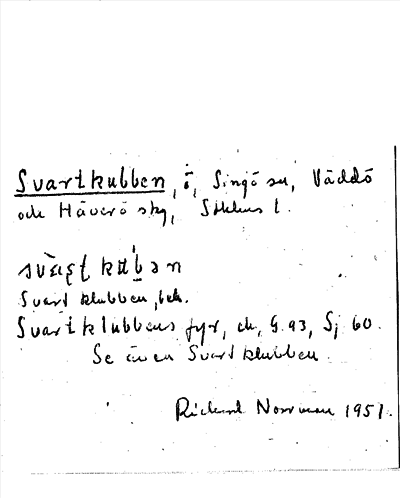 Svartkubben, ö, Singö sn, Väddö
och Häverö skg, Sthlms l.
svart kubən
Svartklubben, bek.
Svartklubbens fyr, ek, G. 93, Sj 60.
Se även Svartklubben.
Rickard Norrman 1951.